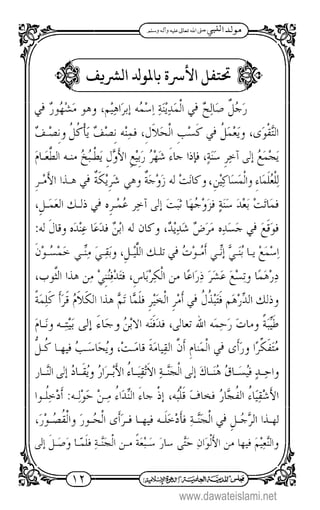 مولد النبي صلى الله تعالى عليه وآله وسلم
تحتفل الأسرة بالمولد الشريف
رَجُلٌ صَالِحٌ فِي الْمَدِيْنَةِ اِسْمُهُ إبراهِيْمُ، وهو مَشْهُورٌ في
التَّقْوَى، ويَعْمَلُ في كَسْبِ الْحَلاَلِ، فمِنْهُ نِصْفٌ يَأْكُلُ ونِصْفٌ
يَجْمَعُ إلى آخِرِ سَنَةٍ، فإذا جَاءَ شَهْرُ رَبِيْعِ الأَوَّلِ يَطْبُخُ منه الطَّعَامَ
لِلْعُلَمَاءِ والْمَسَاكِيْنِ، وكانَتْ له زَوْجَةٌ وهي شَرِيْكَةٌ في هـذا الأَمْرِ
فمَاتَتْ بَعْدَ سَنَةٍ وزَوْجُهَا يَثْبُتُ إلى آخرِ عُمْرِهِ في ذلـك العَمَـلِ،
فوَقَعَ في جَسَدِهِ مَرَضٌ شَدِيْدٌ، وكان له اِبْنٌ فدَعَاهُ عِنْدَهُ وقالَ له:
اِسْمَعْ يـا بُنَـيَّ إنِّـي أَمُـوْتُ في تلـك اللَّيْـلِ، وبَقِـيَ مِنِّـي خَمْسُـوْنَ
دِرْهَمًا وتِسْعَ عَشَرَ ذِرَاعًا من الْكِرْبَاسِ، فتَدْفِنُنِيْ مِنْ هذا الثَّوبِ،
وذلك الدِّرْهَمِ فتَبْذُلُ في أَمْرِ الْخَيْرِ، فلَمَّا تَمَّ هذا الكَلاَمُ قَرَأَ كَلِمَةً
طَيِّبَةً وماتَ رَحِمَهُ الله تعالى، فدَفَنَه الاِبْنُ وجَاءَ إلى بَيْتِـه ونَـامَ
وتَفَكَّرَ، ورأى في الْمَنَامِ أنَّ القِيَامَةَ قـامَـتْ، ويُحَاسَـبُ فيهـا كُـلُّ
واحِـدٍ ويُسَاقُ إلى هُنَـاكَ إلى الْجَنَّـةِ الأَتْقِيَـاءُ الأَبْـرَارُ ويُقَـادُ إلى النَّـار
الأَشْقِيَاءُ الفُجَّارُ فخافَ قَلْبُـه، إذ جـاءَ النِّـدَاءُ مِـنْ حَـوْلِـه: أَدْخِلُـوا
لهـذا الرَّجُـلِ في الْجَنَّـةِ، فأَدْخَلَـه فيهـا فـرَأَى الْحُـورَ والْقُصُـوْرَ،
والنَّعِيْمَ فيها من الأَلْوَانِ حَتَّى سارَ سَبْعَةً مـن الْجَنَّـةِ، فلَمَّـا وَصَـلَ إلى
١٢
مجلس المدينة العلمية (الدعوة الإسلامية)
www.dawateislami.net